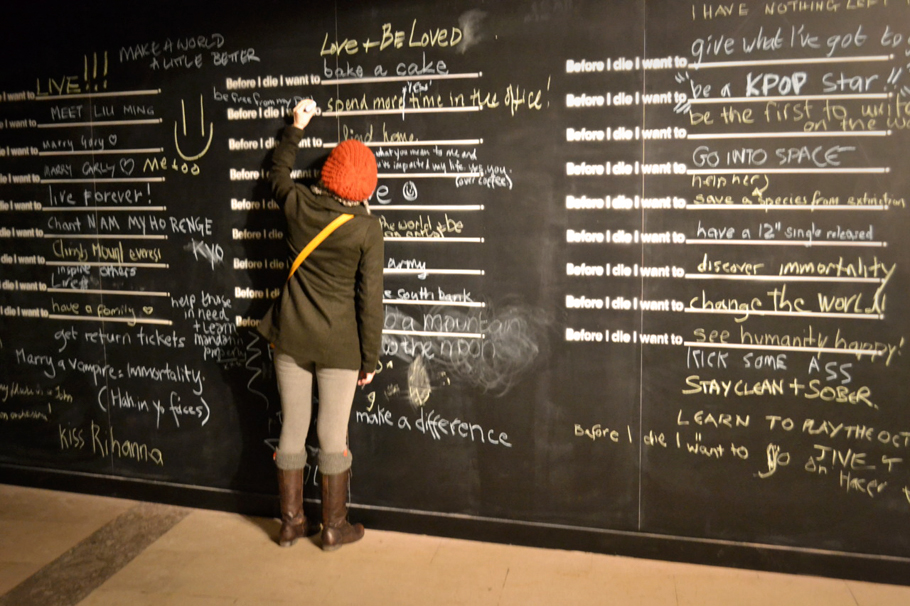 LIVE!!!
MAKE A WORLD
A LITTLE BETTER
I want to
MEET LIU MING
want to
Marry Gary ♡
want to
MARRY CARLY ♡ Me too
want to
live Forever!
want to
Chant NAM MYHO RENGE
KYO
want to
Climb Mount everess
want to
inspire others
want to
have a family ♡
want to
get return tickets
help those
in need
+ learn
mandarin
properly
Marry a vampire = Immortality
(Hah in yo faces)
Kiss Rihanna
LOVE + BE LOVED
Before I die I want to bake a cake
be free from my
Before I die spend more time in the office!
Before I die I want to find home
Before I die what you mean to me and
impacted my life. Yes, you.
(over coffee)
Before I die
Before I die the world + be
Before I die army
Before I die south bank
a mountain
to the moon
make a difference
I HAVE NOTHING LEFT
Before I die I want to give what I've got to
Before I die I want to "be a KPOP star"
Before I die I want to be the first to write
on the
Before I die I want to GO INTO SPACE
help her
Before I die I want to save a species from extinction
Before I die I want to have a 12" single released
Before I die I want to discover immortality
Before I die I want to change the World!
Before I die I want to see humanity happy!
KICK SOME ASS
STAY CLEAN + SOBER
LEARN TO PLAY THE OCT
Before I die I want to go JIVE
on